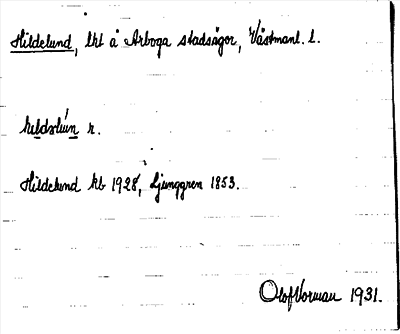 Hildelund, lht å Arboga stadsägor, Västmanl. l.
r.
Hildelund kb 1928, Ljunggren 1853.
Olof Vorman 1931.